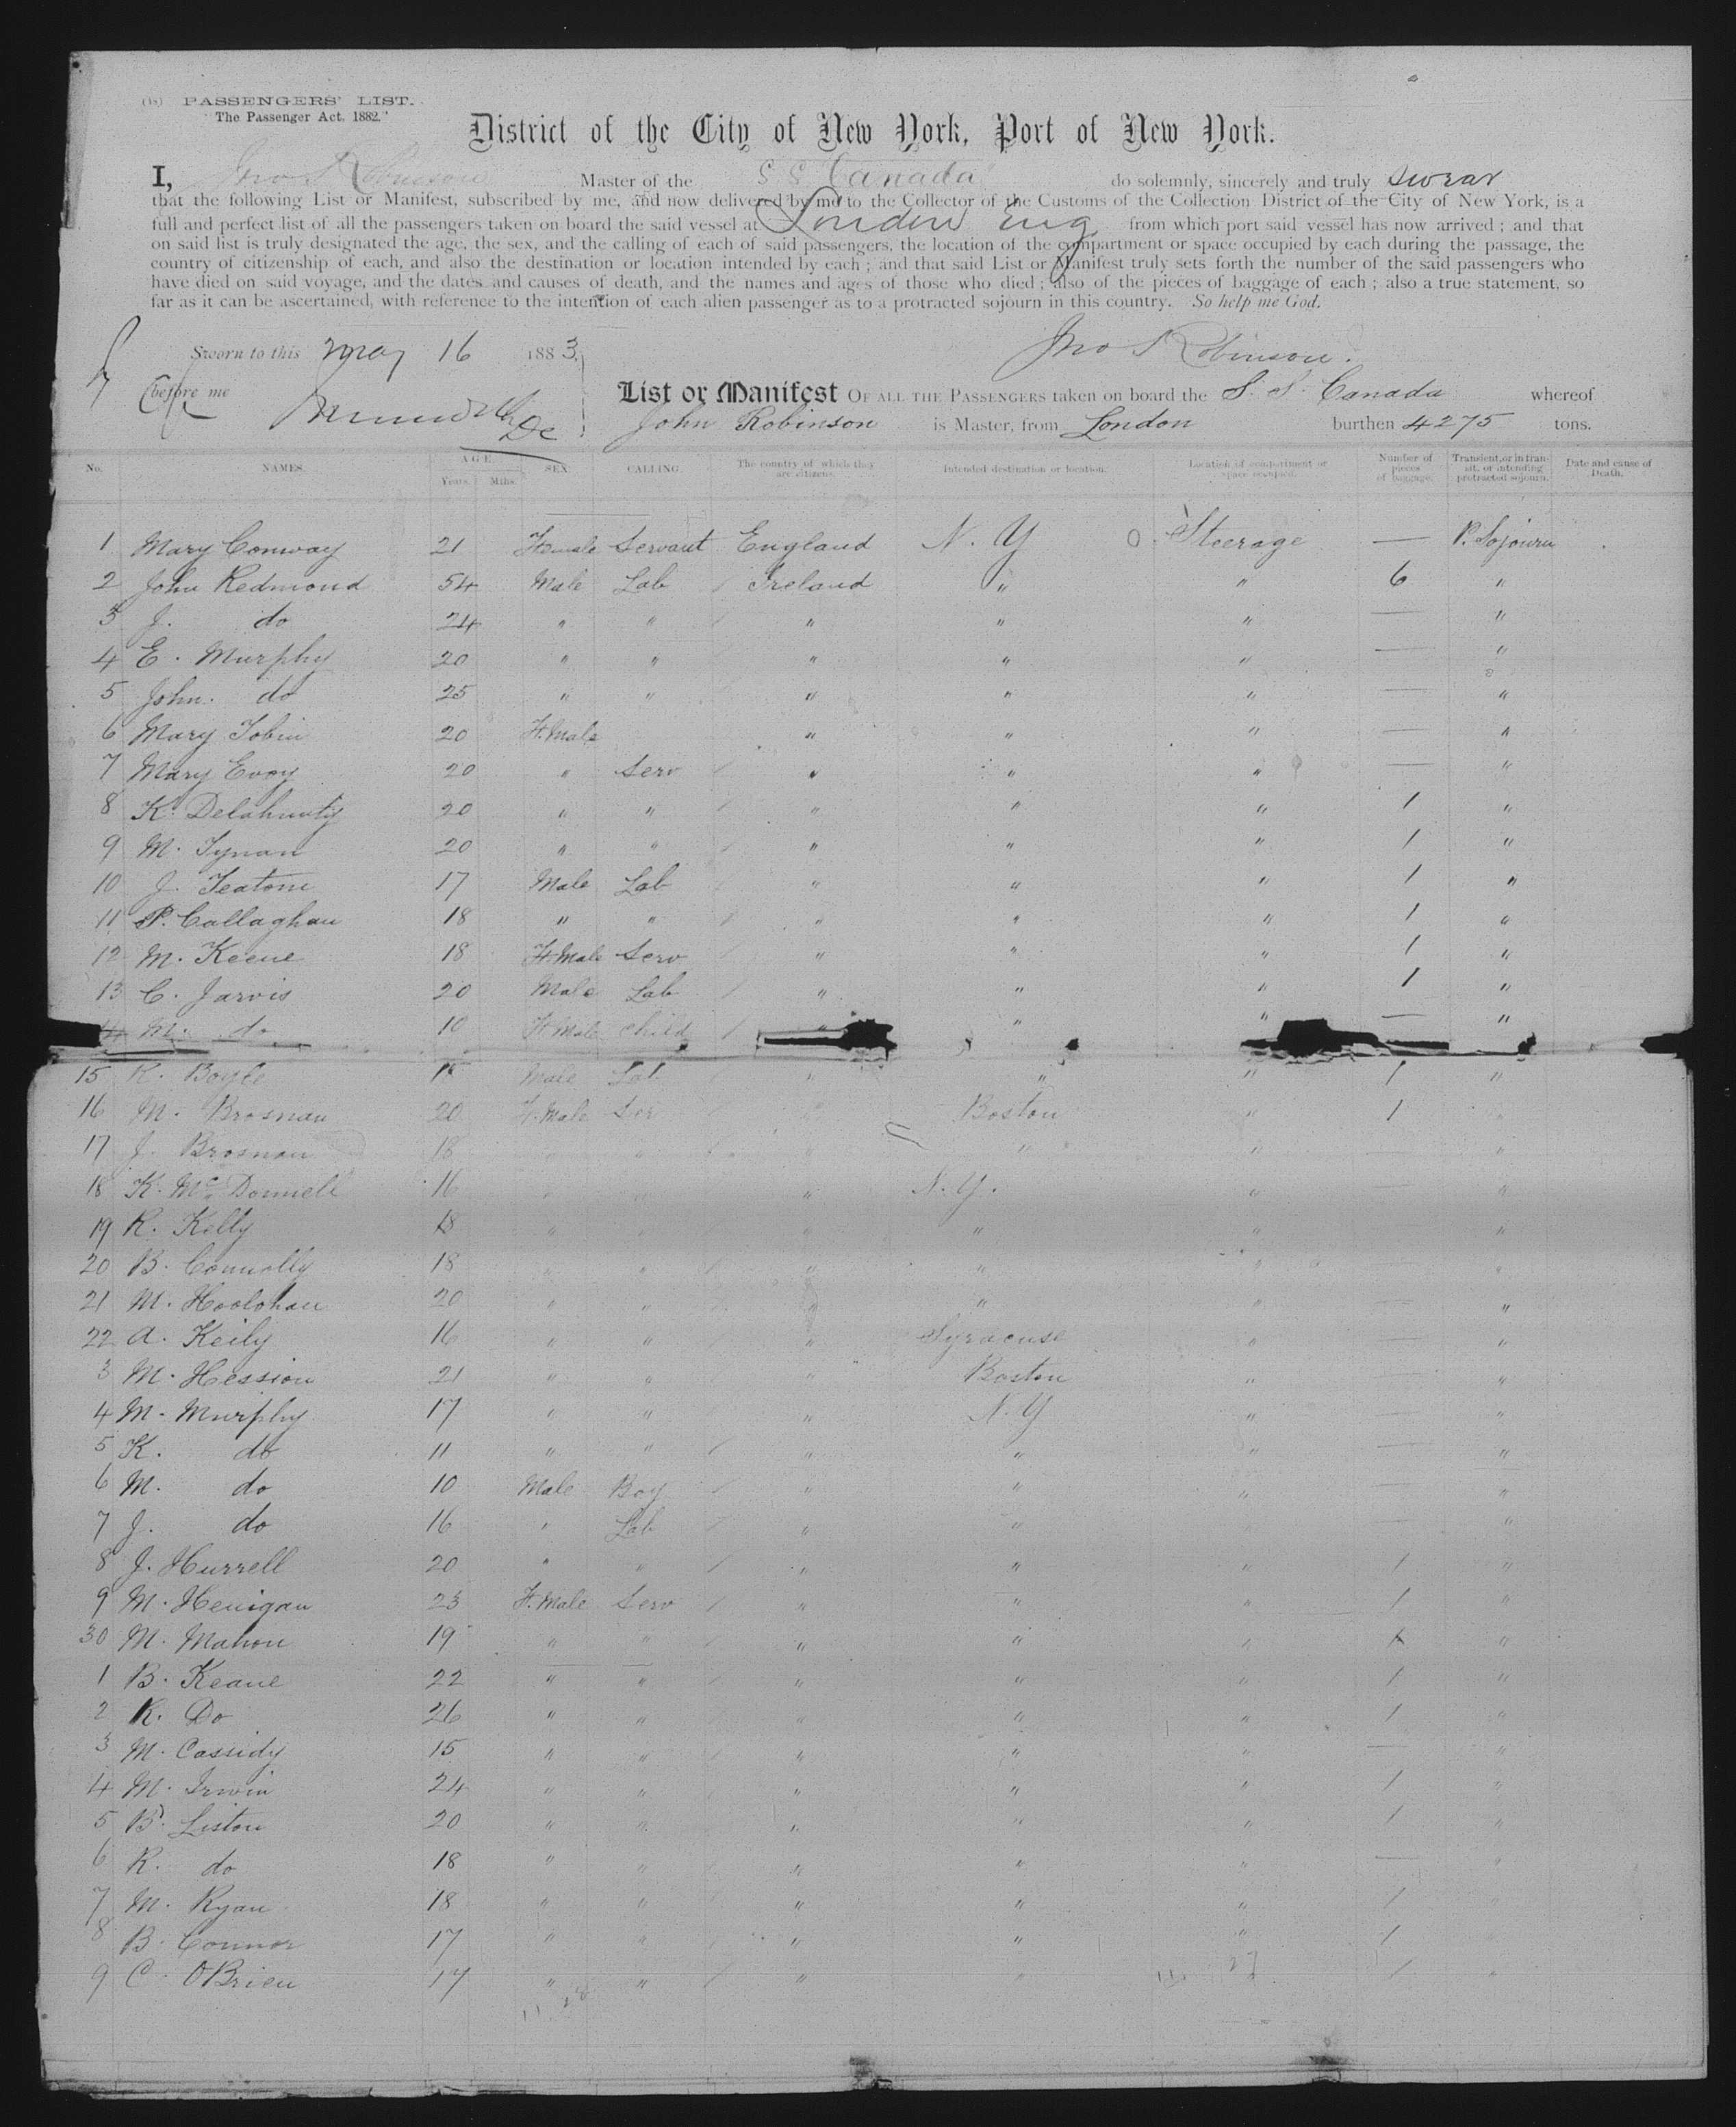 (18) PASSENGERS' LIST.
The Passenger Act, 1882.
District of the City of New York, Port of New York.
I, Jno Robinson Master of the S S Canada do solemnly, sincerely and truly swear
that the following List or Manifest, subscribed by me, and now delivered by me to the Collector of the Customs of the Collection District of the City of New York, is a
full and perfect list of all the passengers taken on board the said vessel at London Eng from which port said vessel has now arrived ; and that
on said list is truly designated the age, the sex, and the calling of each of said passengers, the location of the compartment or space occupied by each during the passage, the
country of citizenship of each, and also the destination or location intended by each ; and that said List or Manifest truly sets forth the number of the said passengers who
have died on said voyage, and the dates and causes of death, and the names and ages of those who died ; also of the pieces of baggage of each ; also a true statement, so
far as it can be ascertained, with reference to the intention of each alien passenger as to a protracted sojourn in this country. So help me God.
Sworn to this May 16 1883, Jno Robinson.
before me
List or Manifest OF ALL THE PASSENGERS taken on board the S. S. Canada whereof
John Robinson is Master, from London burthen 4275 tons.
No. NAMES. AGE Years. Mths. SEX. CALLING. The country of which they are citizens. Intended destination or location. Location of compartment or space occupied. Number of pieces of baggage. Transient, or in transit, or intending protracted sojourn. Date and cause of Death.
1 Mary Conway 21 Female Servant England N. Y O Steerage — P. Sojourn
2 John Redmond 54 Male Lab / Ireland " " 6 "
3 J. do 24 " " / " " " — "
4 E. Murphy 20 " " " " " — "
5 John. do 25 " " " " " — "
6 Mary Tobin 20 F.Male " " " — "
7 Mary Evoy 20 " Serv / " " " — "
8 K. Delahunty 20 " " / " " " 1 "
9 M. Tynan 20 " " / " " " 1 "
10 J. 17 Male Lab " " " 1 "
11 P. Callaghan 18 " " / " " " 1 "
12 M. Keene 18 F.Male Serv / " " " 1 "
13 C. Jarvis 20 Male Lab / " " " 1 "
M. do 10 F.Male child / " " " — "
15 K. Boyle Male Lab " " " 1 "
16 M. Brosnan 20 F.Male Ser Boston " 1
17 J. Brosnan 18 " " " " " — "
18 K. McDonnell 16 " " " N.Y. " — "
19 R. Kelly 18 " " " " " "
20 B. Connolly 18 " " / " " " "
21 M. Hoolohan 20 " " " " " — "
22 A. Keily 16 " " " Syracuse " — "
3 M. Hession 21 " " " Boston " — "
4 M. Murphy 17 " " " N.Y " — "
5 K. do 11 " " / " " " — "
6 M. do 10 Male Boy / " " " — "
7 J. do 16 " Lab / " " — "
8 J. Hurrell 20 " " / " " " 1 "
9 M. Henigan 23 F.Male Serv / " " " 1 "
30 M. Mahon 19 " " / " " " 1 "
1 B. Keane 22 " " / " " " 1 "
2 K. Do 26 " " " " " 1 "
3 M. Cassidy 15 " " / " " " — "
4 M. Irwin 24 " " " " " 1 "
5 B. Liston 20 " " " " " 1 "
6 R. do 18 " " / " " " — "
7 M. Ryan 18 " " / " " " 1
8 B. Connor 17 " " " " " 1
9 C. OBrien 17 " " / " " 1 "
11 28
11 27